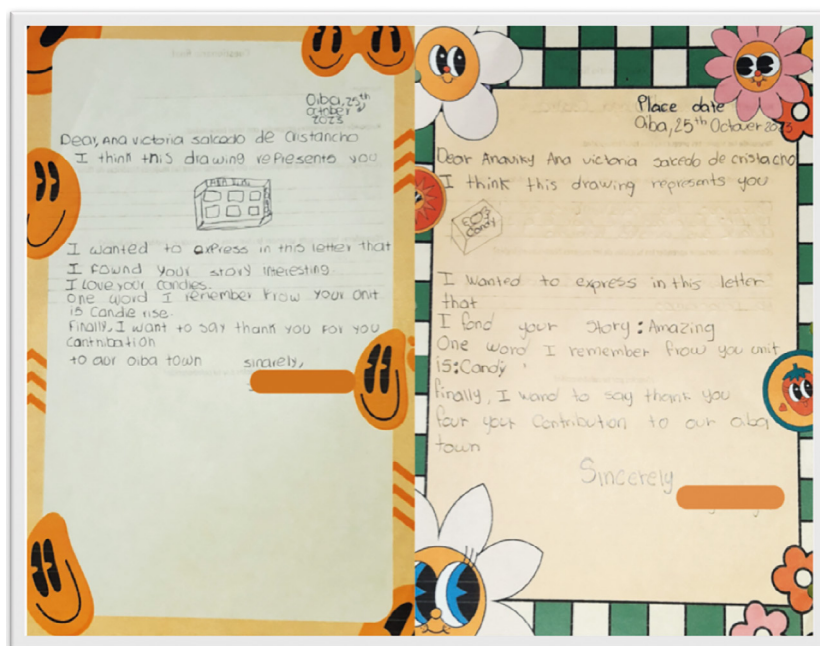 Oiba, 25th
october
2023
Dear, Ana victoria salcado de Cristancho
I think this drawing rePresents you
I wanted to exPress in this letter that
I fownd your story interesting
I love your candies.
One word I remember from your unit
is Candie rise.
Finally, I want to say thank you For you
Cantribation
to our oiba town sinarely,
Place date
Oiba, 25th Octouer 2023
Dear Anaviky Ana victoria salcedo de cristacho
I think this drawing represents you
Candy
I wanted to express in this letter
that
I fond your Story: Amazing
One word I remember frow you unit
is: Candy
Finally, I wand to say thank you
four your Contribution to our oiba
town
Sincerely